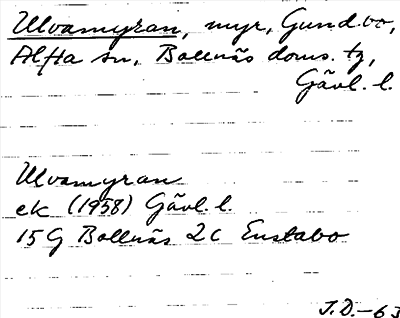 Ulvamyran, myr, Gund.bo,
Alfta sn, Bollnäs doms. tg,
Gävl. l.
Ulvamyran
ek (1958) Gävl. l.
15G Bollnäs 2c Enstabo
J.D.-63